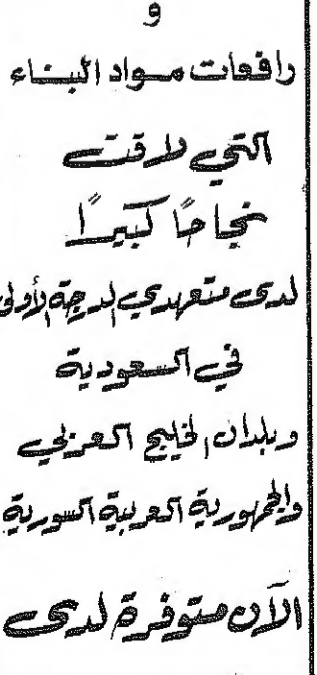 و
رافعات مواد البناء
التي لاقت
نجاحًا كبيرًا
لدى متعهدي الدرجة الأولى
في السعودية
وبلدان الخليج العربي
والجمهورية العربية السورية
الآن متوفرة لدى